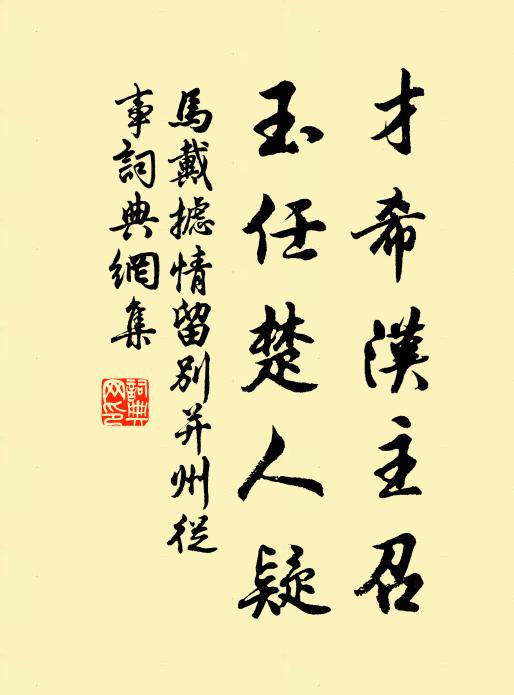 才希漢主召
玉任楚人疑
馬戴攄情留別并州從
事詞典網集
詞典
网印